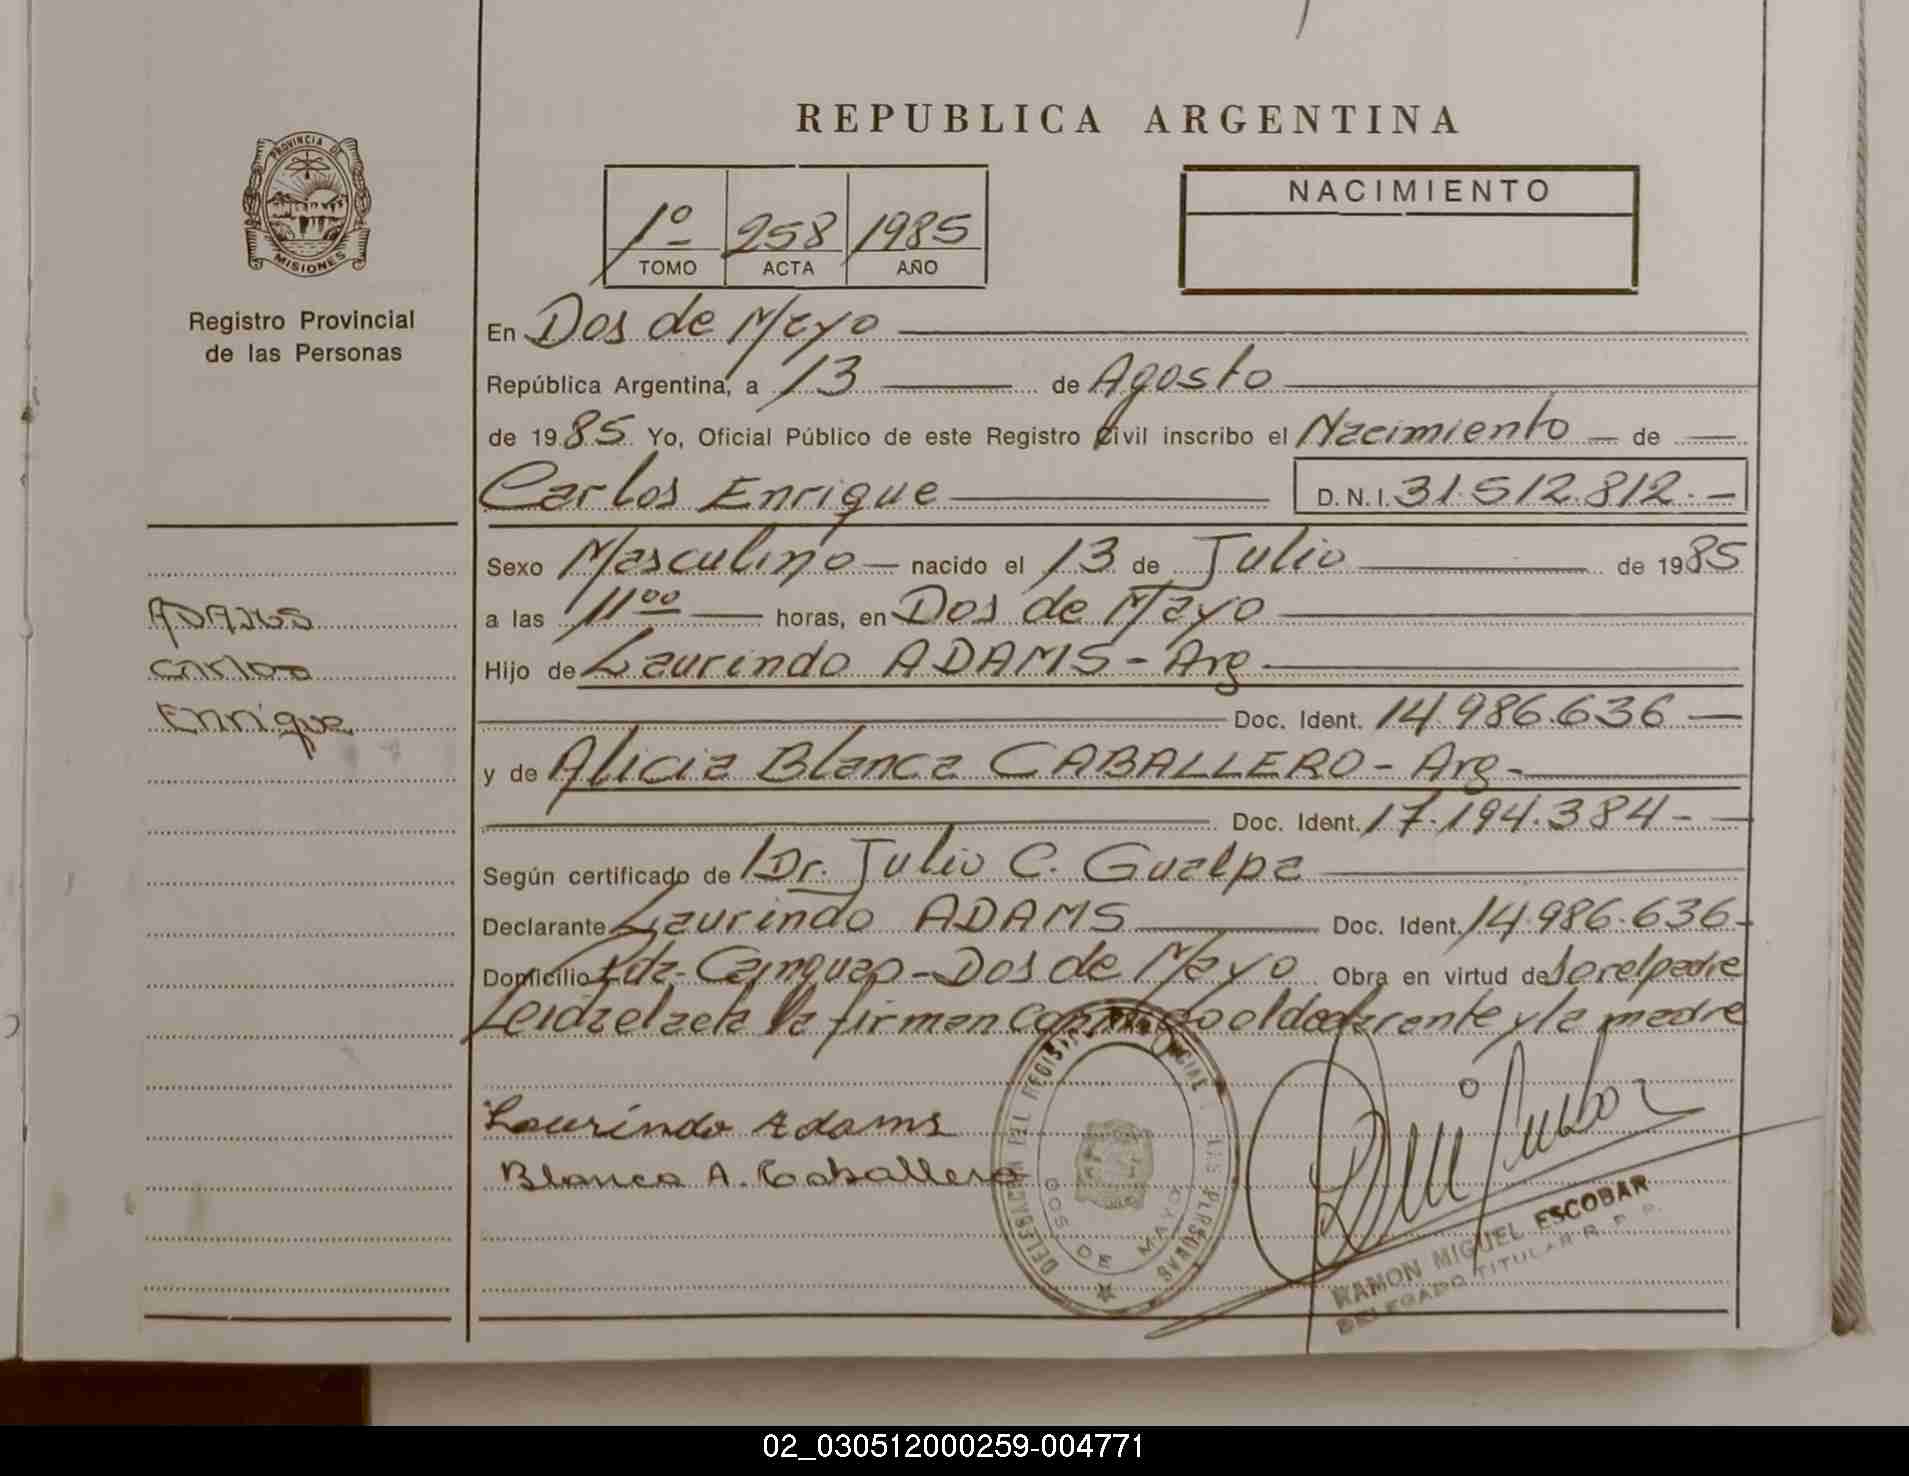 REPUBLICA ARGENTINA
PROVINCIA DE
MISIONES
Registro Provincial
de las Personas
1º 258 1985
TOMO ACTA AÑO
NACIMIENTO
En Dos de Mayo
República Argentina, a 13 de Agosto
de 1985 Yo, Oficial Público de este Registro Civil inscribo el Nacimiento de
Carlos Enrique D.N.I. 31.512.812.-
Sexo Masculino nacido el 13 de Julio de 1985
a las 11⁰⁰ horas, en Dos de Mayo
Hijo de Laurindo ADAMS - Arg
Doc. Ident. 14.986.636
y de Alicia Blanca CABALLERO - Arg -
Doc. Ident. 17.194.384 -
Según certificado de Dr. Julio C. Gualpa
Declarante Laurindo ADAMS Doc. Ident. 14.986.636-
Domicilio Cainguas - Dos de Mayo Obra en virtud de ser el padre
Leida el acta la firman conmigo el declarante y la madre
ADAMS
Carlos
Enrique
Laurindo Adams
Blanca A. Caballero
DELEGACION DEL REGISTRO PROVINCIAL DE LAS PERSONAS
DOS DE MAYO
RAMON MIGUEL ESCOBAR
DELEGADO TITULAR R. P. P.
02_030512000259-004771